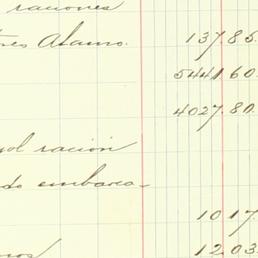 raciones
tres Alamo. 137.85.
5441.60.
4027.80.
sol ración
do embarca-
1017.
1203.